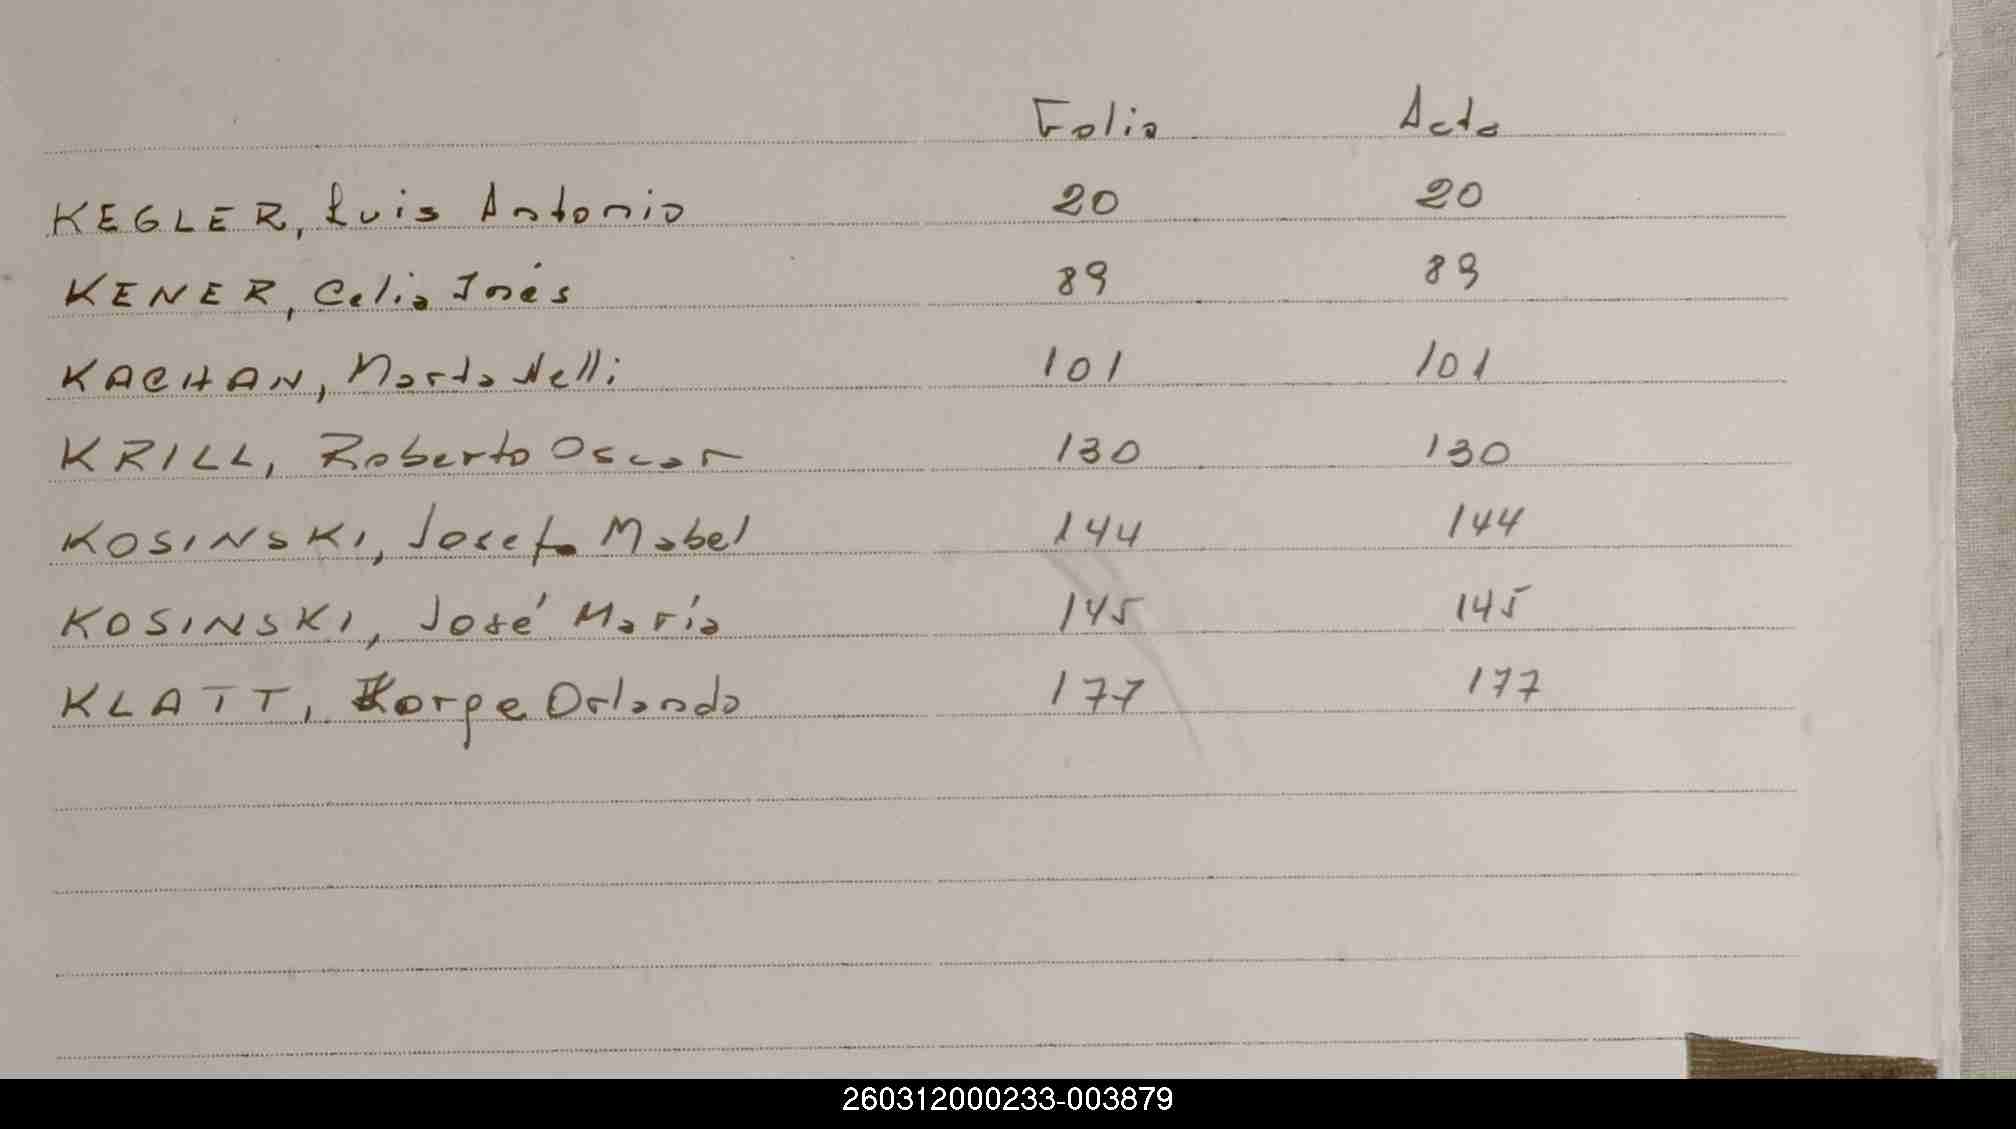 Folio Acta
KEGLER, Luis Antonio 20 20
KENER, Celia Inés 89 89
KACHAN, Marta Nelli 101 101
KRILL, Roberto Oscar 130 130
KOSINSKI, Josefa Mabel 144 144
KOSINSKI, José María 145 145
KLATT, Jorge Orlando 177 177
260312000233-003879